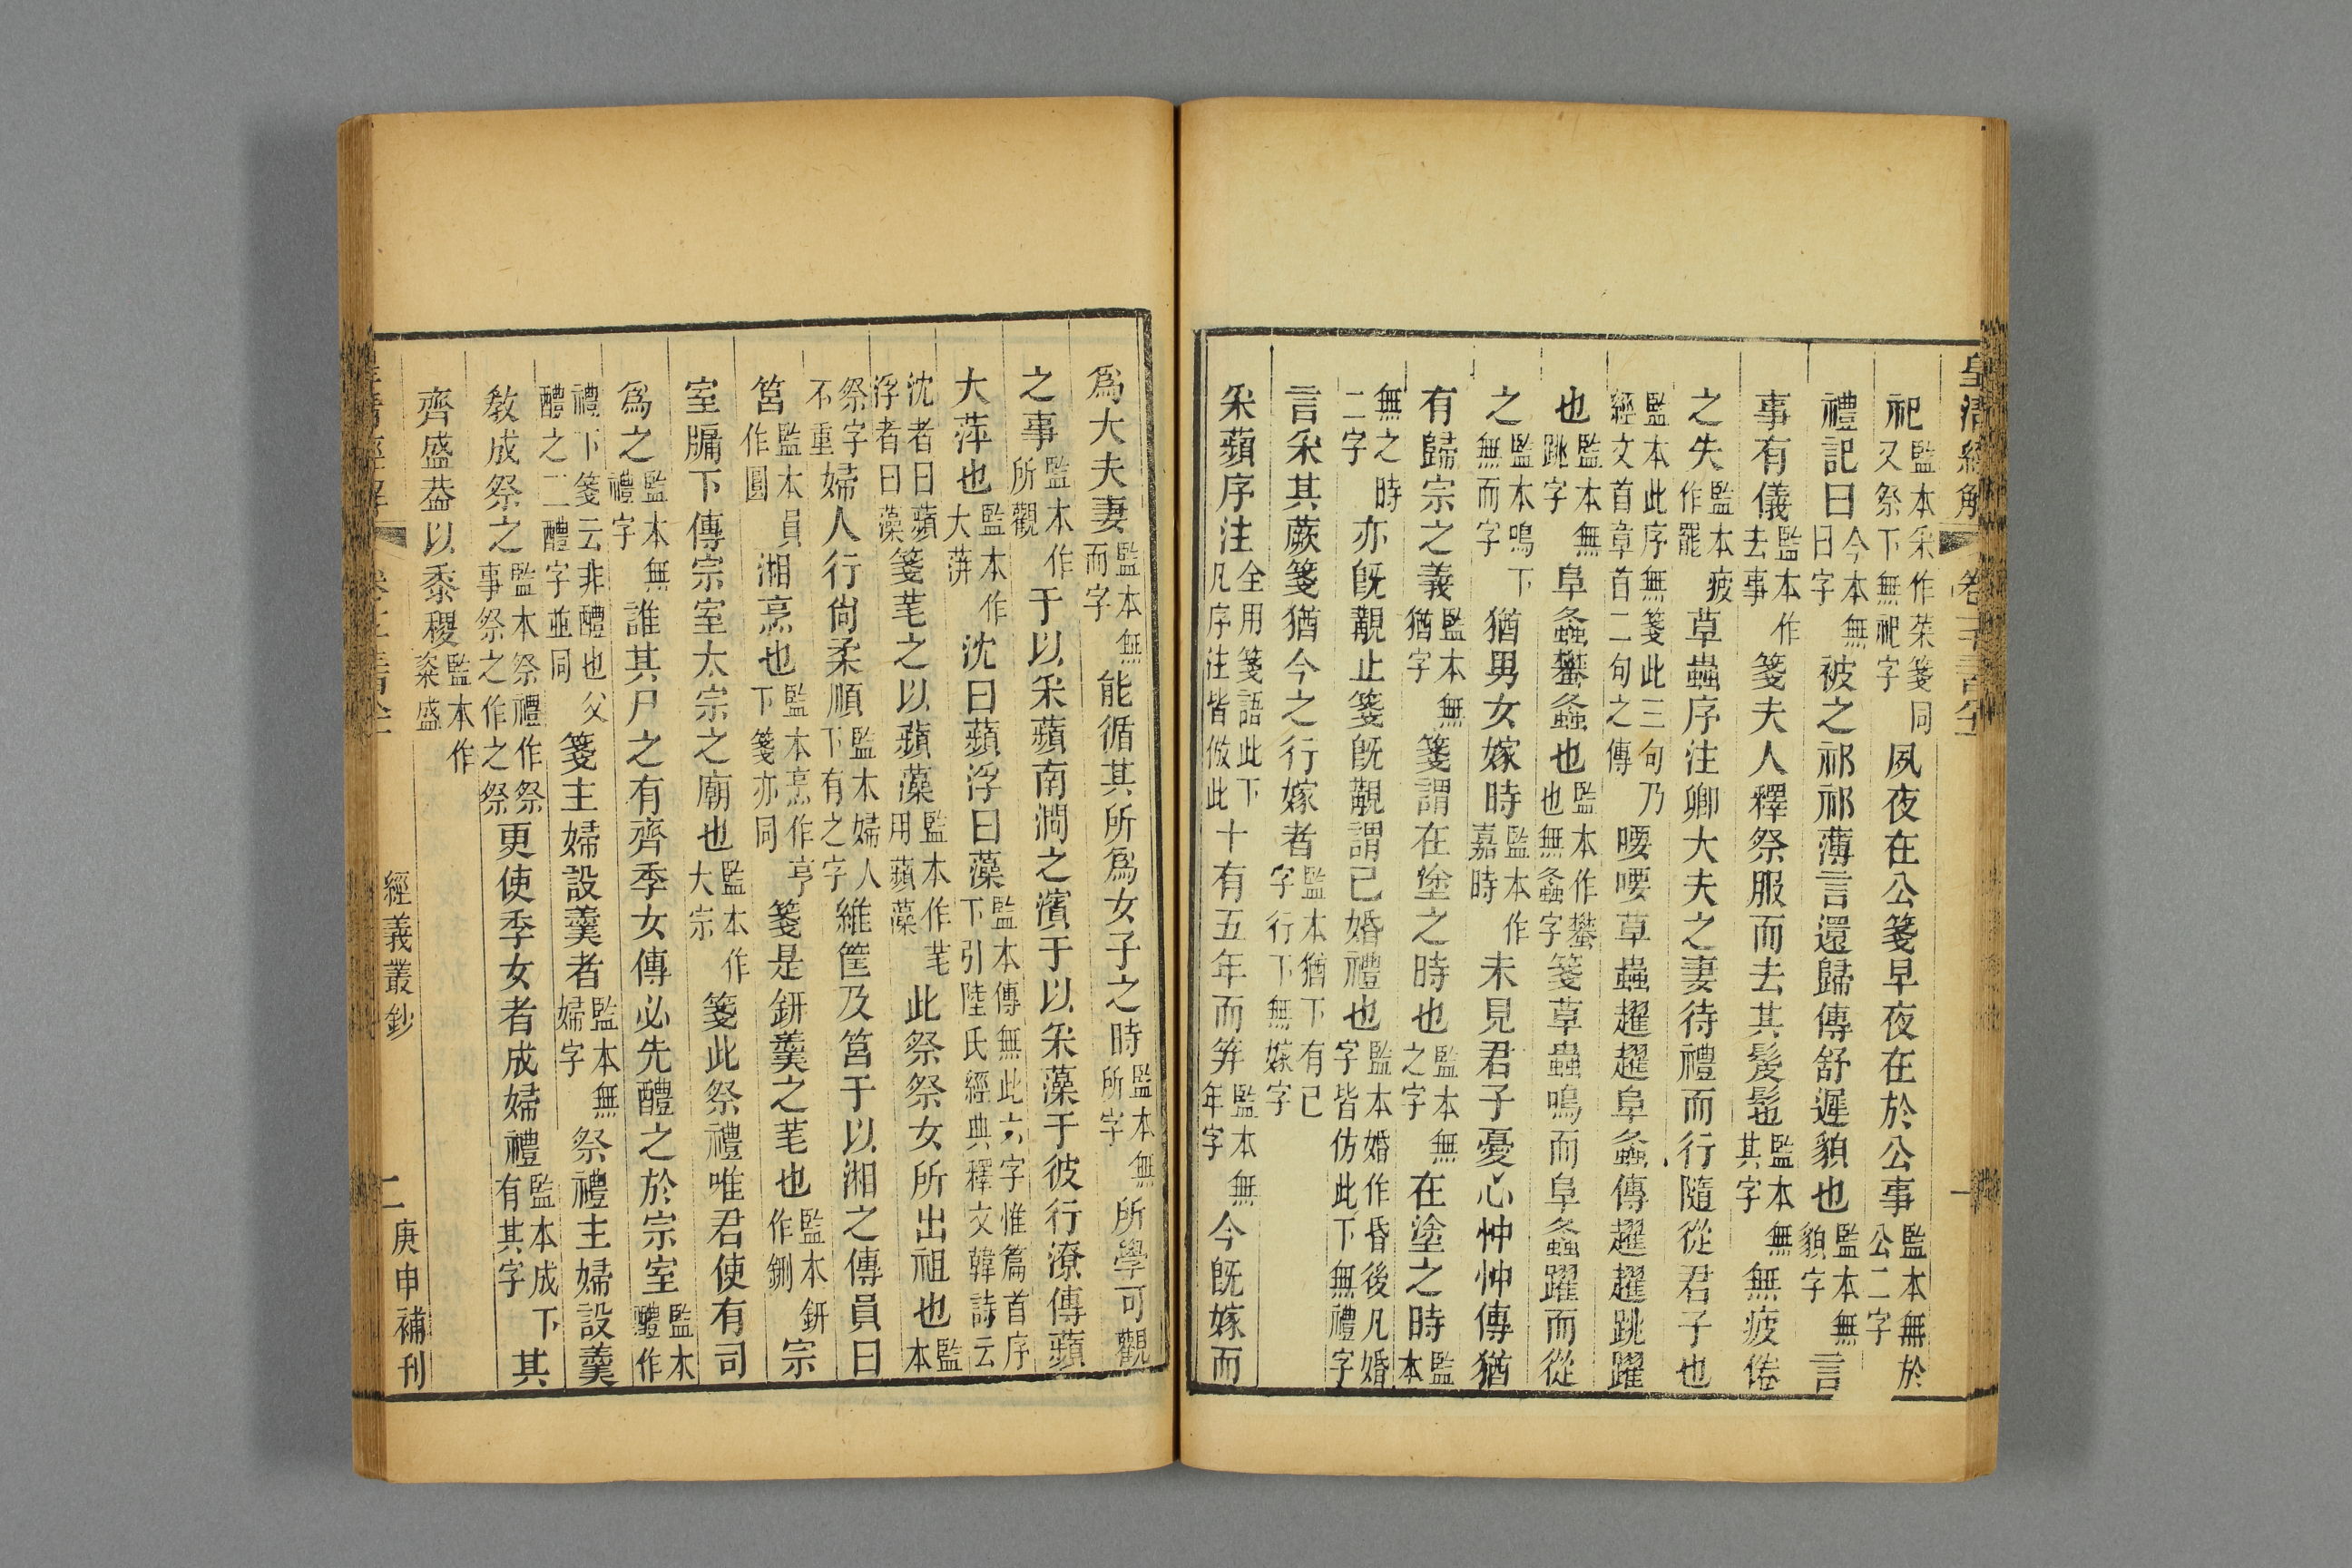 皇清經解
一
祀監本采作菜箋同又祭下無祀字夙夜在公箋早夜在於公事監本無於公二字
禮記曰今本無曰字被之祁祁薄言還歸傳舒遲貌也監本無貌字言
事有儀監本作去事箋夫人釋祭服而去其髮髢監本無其字無疲倦
之失監本疲作罷草蟲序注卿大夫之妻待禮而行隨從君子也
監本此序無箋此三句乃經文首章首二句之傳喓喓草蟲趯趯阜螽傳趯趯跳躍
也監本無跳字阜螽蠜螽也監本作蠜也無螽字箋草蟲鳴而阜螽躍而從
之監本鳴下無而字猶男女嫁時監本作嘉時未見君子憂心忡忡傳猶
有歸宗之義監本無猶字箋謂在塗之時也監本無之字在塗之時監本
無之時二字亦既覯止箋既覯謂已婚禮也監本婚作昏後凡婚字皆仿此下無禮字
言采其蕨箋猶今之行嫁者監本猶下有已字行下無嫁字
采蘋序注全用箋語此下凡序注皆倣此十有五年而筓監本無年字今既嫁而
爲大夫妻監本無而字能循其所爲女子之時監本無所字所學可觀
之事監本作所觀于以采蘋南澗之濱于以采藻于彼行潦傳蘋
大萍也監本作大蓱沈曰蘋浮曰藻監本傳無此六字惟篇首序下引陸氏經典釋文韓詩云
沈者曰蘋浮者曰藻箋芼之以蘋藻監本作芼用蘋藻此祭祭女所出祖也監本
祭字不重婦人行尙柔順監本婦人下有之字維筐及筥于以湘之傳員曰
筥監本員作圓湘烹也監本烹作亨下箋亦同箋是鈃羹之芼也監本鈃作鉶宗
室牖下傳宗室太宗之廟也監本作大宗箋此祭禮唯君使有司
爲之監本無禮字誰其尸之有齊季女傳必先醴之於宗室監本醴作
禮下箋云非醴也父醴之二醴字並同箋主婦設羹者監本無婦字祭禮主婦設羹
敎成祭之監本祭禮作祭事祭之作之祭更使季女者成婦禮監本成下有其字其
齊盛葢以黍稷監本作粢盛
經義叢鈔
二
庚申補刊